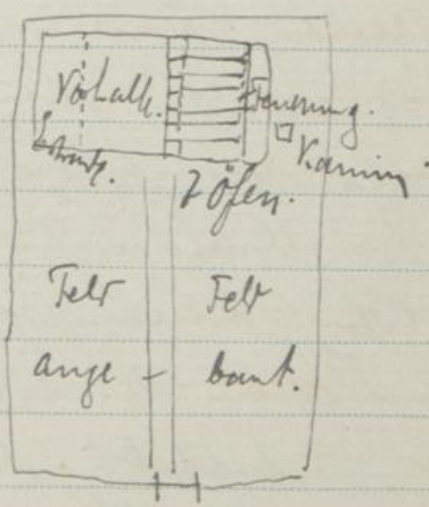 Vorhalle.
Feuerung.
Kamin
7 Öfen.
Feld Feld
ange - baut.